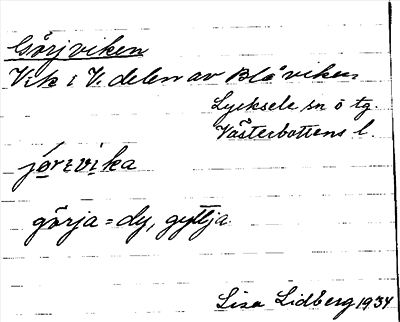 Görjviken
Vik i V. delen av Blåviken
Lycksele sn o tg.
Västerbottens l.
görja = dy, gyttja
Lisa Lidberg 1934